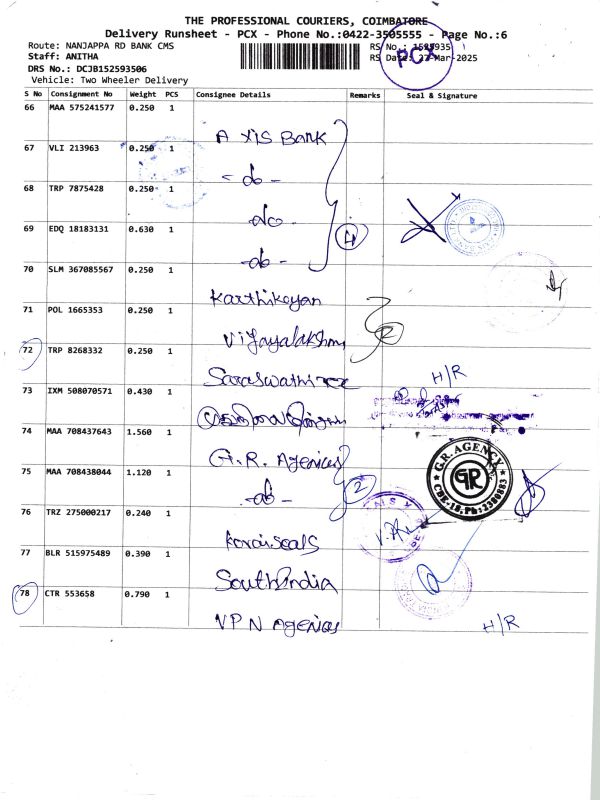 THE PROFESSIONAL COURIERS, COIMBATORE
Delivery Runsheet - PCX - Phone No.:0422-3505555 - Page No.:6
Route: NANJAPPA RD BANK CMS
RS No.:
Staff: ANITHA
RS Date: 27-Mar-2025
PCX
DRS No.: DCJB152593506
Vehicle: Two Wheeler Delivery
S No Consignment No Weight PCS Consignee Details Remarks Seal & Signature
66 MAA 575241577 0.250 1
Axis Bank
67 VLI 213963 0.250 1
- do -
68 TRP 7875428 0.250 1
do
4
69 EDQ 18183131 0.630 1
- do -
70 SLM 367085567 0.250 1
Karthikeyan
71 POL 1665353 0.250 1
Vijayalakshmi
72 TRP 8268332 0.250 1
Saraswathi
H/R
73 IXM 508070571 0.430 1
74 MAA 708437643 1.560 1
G.R. Agencies
G.R. AGENCY
GR
CBE-18.Ph:2380883
75 MAA 708438044 1.120 1
- do -
2
76 TRZ 275000217 0.240 1
Kovai seals
77 BLR 515975489 0.390 1
South India
78 CTR 553658 0.790 1
VPN Agencies
H/R